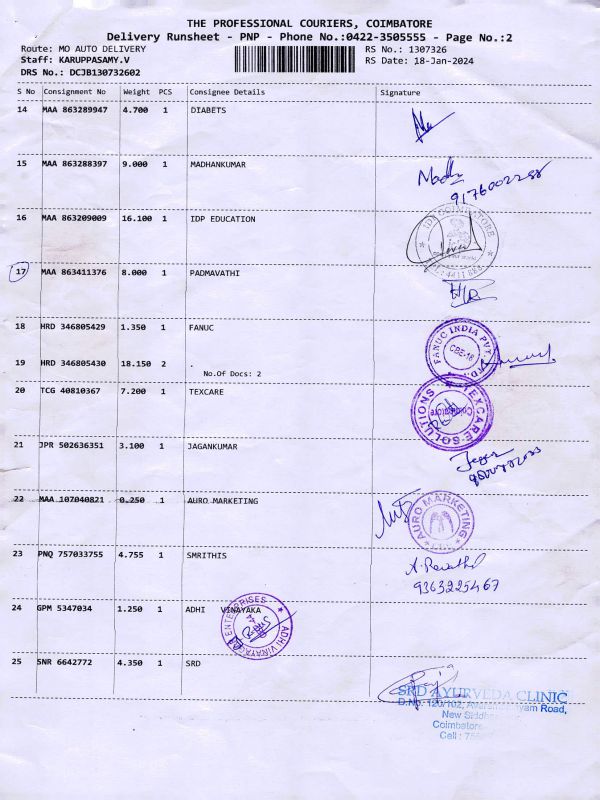 THE PROFESSIONAL COURIERS, COIMBATORE
Delivery Runsheet - PNP - Phone No.:0422-3505555 - Page No.:2
Route: MO AUTO DELIVERY RS No.: 1307326
Staff: KARUPPASAMY.V RS Date: 18-Jan-2024
DRS No.: DCJB130732602
S No Consignment No Weight PCS Consignee Details Signature
14 MAA 863289947 4.700 1 DIABETS
15 MAA 863288397 9.000 1 MADHANKUMAR
Madh
9176002288
16 MAA 863209009 16.100 1 IDP EDUCATION
IDP COIMBATORE
17 MAA 863411376 8.000 1 PADMAVATHI
18 HRD 346805429 1.350 1 FANUC
FANUC INDIA PVT. LTD.
CBE-18
19 HRD 346805430 18.150 2 .
No.Of Docs: 2
20 TCG 40810367 7.200 1 TEXCARE
TEXCARE SOLUTIONS
Coimbatore
21 JPR 502636351 3.100 1 JAGANKUMAR
Jagan
22 MAA 107040821 0.250 1 AURO MARKETING
AURO MARKETING
23 PNQ 757033755 4.755 1 SMRITHIS
A. Revathi
9363225467
24 GPM 5347034 1.250 1 ADHI VINAYAKA
ADHI VINAYAGA ENTERPRISES
25 SNR 6642772 4.350 1 SRD
SRD AYURVEDA CLINIC
D.No. 120/102, yam Road,
New Siddha
Coimbatore
Cell :